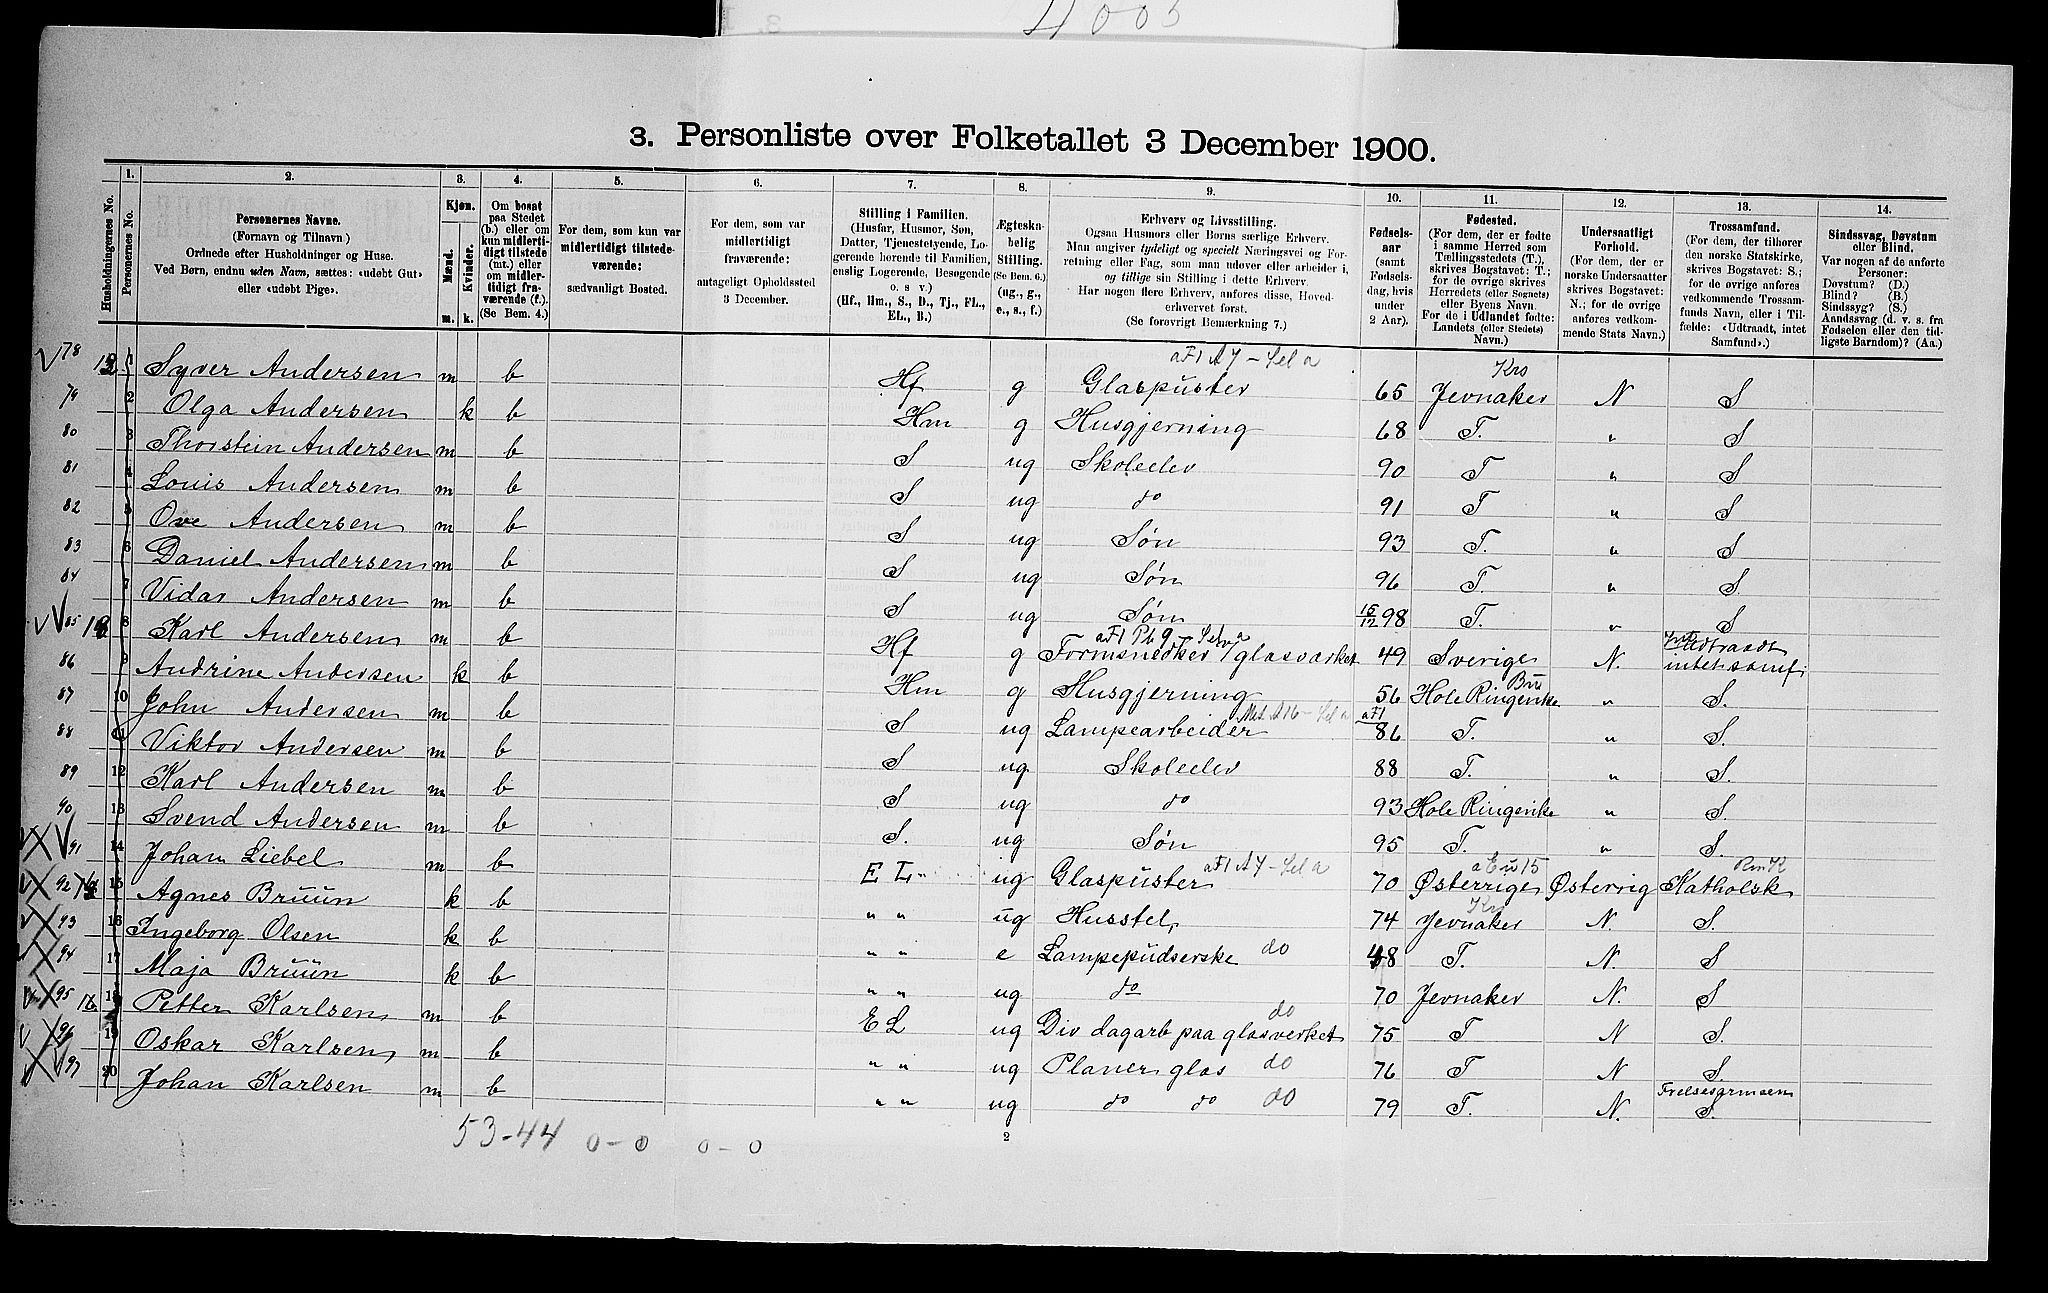 3. Personliste over Folketallet 3 December 1900.
Husholdningernes No.
1. Personernes No.
2. Personernes Navne. (Fornavn og Tilnavn) Ordnede efter Husholdninger og Huse. Ved Børn, endnu uden Navn, sættes: «udøbt Gut» eller «udøbt Pige».
3. Kjøn. Mænd. m. Kvinder. k.
4. Om bosat paa Stedet (b.) eller om kun midlertidigt tilstede (mt.) eller om midlertidigt fraværende (f.). (Se Bem. 4.)
5. For dem, som kun var midlertidigt tilstedeværende: sædvanligt Bosted.
6. For dem, som var midlertidigt fraværende: antageligt Opholdssted 3 December.
7. Stilling i Familien. (Husfar, Husmor, Søn, Datter, Tjenestetyende, Logerende hørende til Familien, enslig Logerende, Besøgende o. s v.) (Hf., Hm., S., D., Tj., FL., EL., B.)
8. Ægteskabelig Stilling. (Se Bem. 6.) (ug., g., e., s., f.)
9. Erhverv og Livsstilling. Ogsaa Husmors eller Børns særlige Erhverv. Man angiver tydeligt og specielt Næringsvei og Forretning eller Fag, som man udøver eller arbeider i, og tillige sin Stilling i dette Erhverv. Har nogen flere Erhverv, anføres disse, Hovederhvervet først. (Se forøvrigt Bemærkning 7.)
10. Fødselsaar (samt Fødselsdag, hvis under 2 Aar).
11. Fødested. (For dem, der er fødte i samme Herred som Tællingsstedets (T.), skrives Bogstavet: T.; for de øvrige skrives Herredets (eller Sognets) eller Byens Navn. For de i Udlandet fødte: Landets (eller Stedets) Navn.)
12. Undersaatligt Forhold. (For dem, der er norske Undersaatter skrives Bogstavet: N.; for de øvrige anføres vedkommende Stats Navn.)
13. Trossamfund. (For dem, der tilhører den norske Statskirke, skrives Bogstavet: S.; for de øvrige anføres vedkommende Trossamfunds Navn, eller i Tilfælde: «Udtraadt, intet Samfund».)
14. Sindssvag, Døvstum eller Blind. Var nogen af de anførte Personer: Døvstum? (D.) Blind? (B.) Sindssyg? (S.) Aandssvag (d. v. s. fra Fødselen eller den tidligste Barndom)? (Aa.)
78 1 Syver Andersen m b Hf g Glaspuster 65 Jevnaker N S
79 2 Olga Andersen k b Hm g Husgjerning 68 T. " S
80 3 Thorstein Andersen m b S ug Skoleelev 90 T " S
81 4 Louis Andersen m b S ug do 91 T " S
82 5 Ove Andersen m b S ug Søn 93 T. " S
83 6 Daniel Andersen m b S ug Søn 96 T " S.
84 7 Vidar Andersen m b S ug Søn 15/12 98 T. " S
85 8 Karl Andersen m b Hf g Formsnedker v/ glasværket 49 Sverige N. Udtraadt intet samf
86 9 Andrine Andersen k b Hm g Husgjerning 56 Hole Ringerike " S.
87 10 John Andersen m b S ug Lampearbeider 86 T. " S.
88 11 Viktor Andersen m b S ug. Skoleelev 88 T. " S.
89 12 Karl Andersen m b S ug do 93 Hole Ringerike " S.
90 13 Svend Andersen m b S. ug Søn 95 T. " S.
91 14 Johan Liebel m b E L ug Glaspuster 70 Østerrige Østerrig Katholsk
92 15 Agnes Bruun k b " " ug Husstel 74 Jevnaker N. S.
93 16 Ingeborg Olsen k b " " e Lampepudserske do 48 T. N. S
94 17 Maja Bruun k b " " ug do 70 Jevnaker N. S
95 18 Petter Karlsen m b E L ug Div dagarb paa glasverket do 75 T N S.
96 19 Oskar Karlsen m b " " ug Planer glas do 76 T N S.
97 20 Johan Karlsen m b " " ug do do do 79 T. N. Frelsesarmeen S.
53-44 0-0 0-0
2